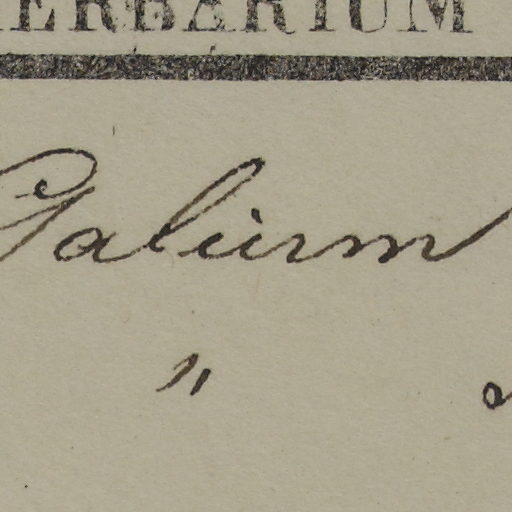 HERBARIUM
Galium
"